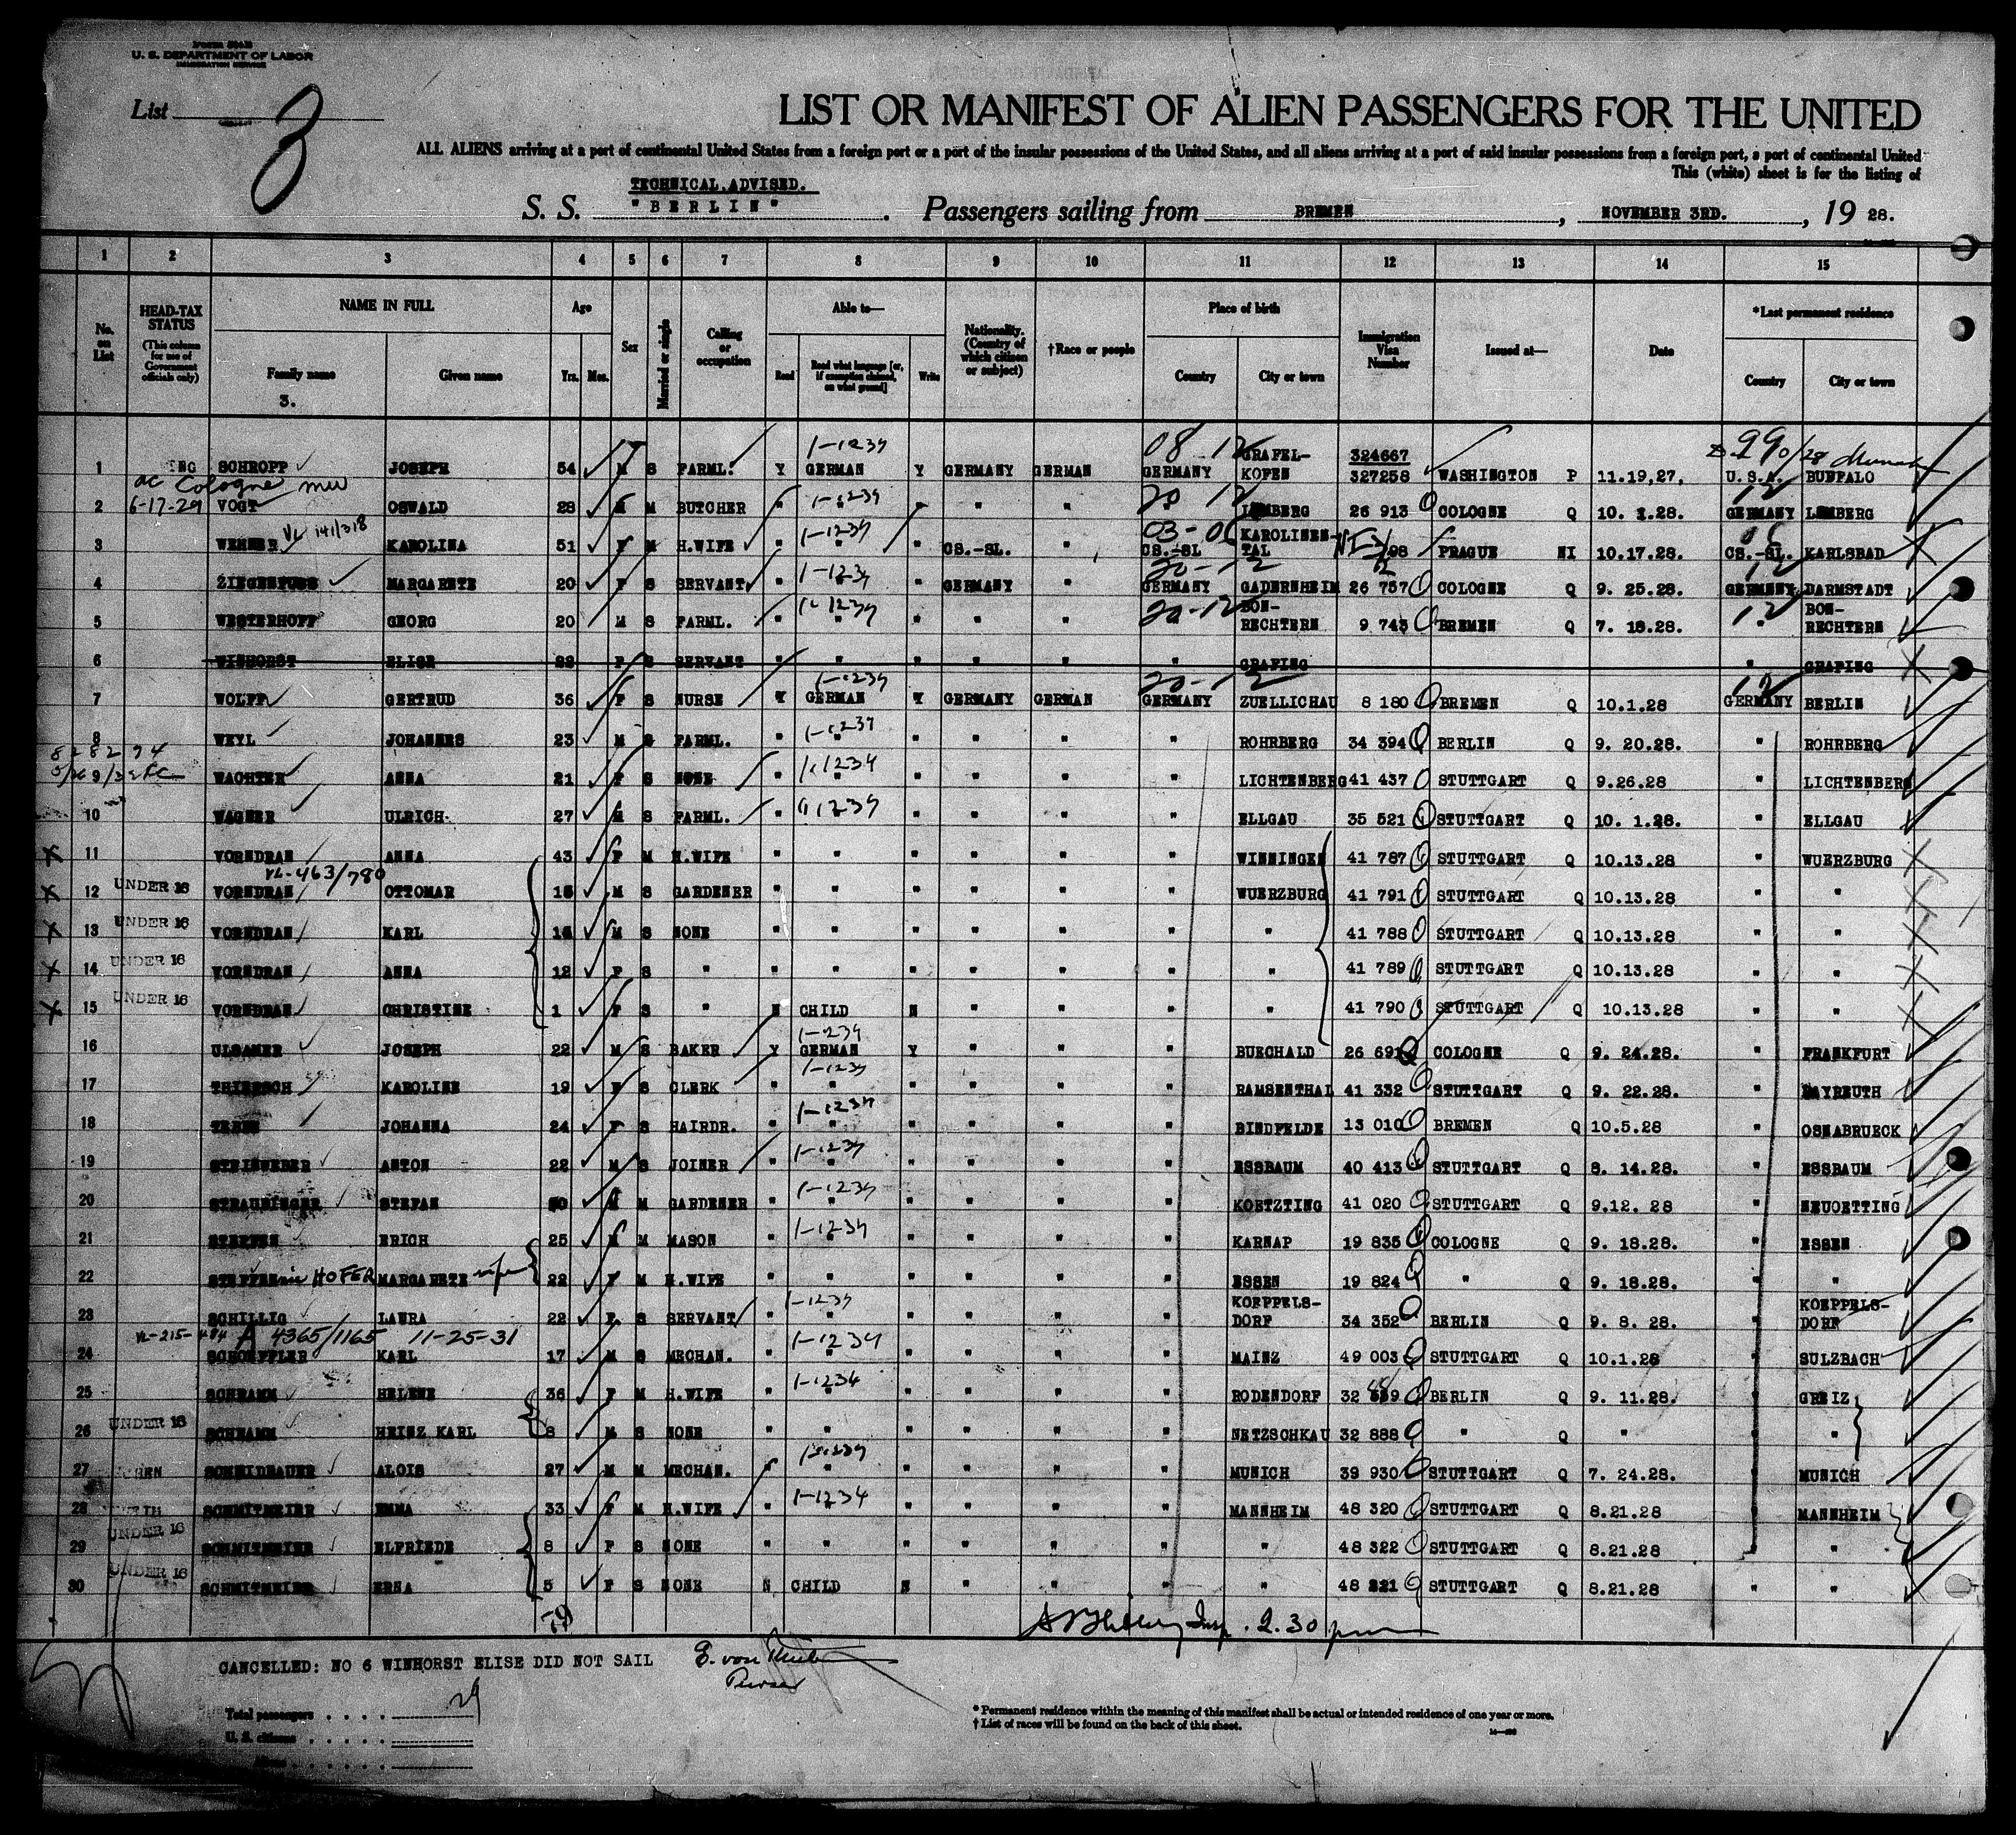 U. S. DEPARTMENT OF LABOR
IMMIGRATION SERVICE
List 3
LIST OR MANIFEST OF ALIEN PASSENGERS FOR THE UNITED
ALL ALIENS arriving at a port of continental United States from a foreign port or a port of the insular possessions of the United States, and all aliens arriving at a port of said insular possessions from a foreign port, a port of continental United
This (white) sheet is for the listing of
TECHNICAL ADVISED.
S. S. "BERLIN". Passengers sailing from BREMEN, NOVEMBER 3RD., 19 28.
1 2 3 4 5 6 7 8 9 10 11 12 13 14 15
No. on List
HEAD-TAX STATUS (This column for use of Government officials only)
NAME IN FULL Family name Given name
3.
Age Yrs. Mos.
Sex
Married or single
Calling or occupation
Able to— Read Read what language [or, if exemption claimed, on what ground] Write
Nationality. (Country of which citizen or subject)
†Race or people
Place of birth Country City or town
Immigration Visa Number
Issued at—
Date
*Last permanent residence Country City or town
1 SCHROPP JOSEPH 54 M S FARML. Y 1-1234 GERMAN Y GERMANY GERMAN GERMANY GRAFEL-KOFEN 324667 327258 WASHINGTON P 11.19.27. U.S.A. BUFFALO
ac Cologne
2 6-17-29 VOGT OSWALD 28 M M BUTCHER " 1-1234 " " " " " LEMBERG 26 913 COLOGNE Q 10. 1.28. GERMANY LEMBERG
VL 141/318
3 WERNER KAROLINA 51 F M H.WIFE " 1-1234 " " CS.-SL. " CS.-SL KAROLINEN-TAL 98 PRAGUE NI 10.17.28. CS.-SL. KARLSBAD
4 ZIEGENFUSS MARGARETE 20 F S SERVANT " 1-1234 " " GERMANY " GERMANY GADERNHEIM 26 757 COLOGNE Q 9. 25.28. GERMANY DARMSTADT
5 WESTERHOFF GEORG 20 M S FARML. " 1-1234 " " " " 20-12 BON-RECHTERN 9 743 BREMEN Q 7. 18.28. " BON-RECHTERN
6 WINHORST ELISE 22 F S SERVANT " " " " " " GRAFING " GRAFING
7 WOLFF GERTRUD 36 F S NURSE Y 1-1234 GERMAN Y GERMANY GERMAN GERMANY ZUELLICHAU 8 180 BREMEN Q 10.1.28 GERMANY BERLIN
8 WEYL JOHANNES 23 M S FARML. " 1-1234 " " " " " ROHRBERG 34 394 BERLIN Q 9. 20.28. " ROHRBERG
9 WACHTER ANNA 21 F S NONE " 1-1234 " " " " " LICHTENBERG 41 437 STUTTGART Q 9.26.28 " LICHTENBERG
10 WAGNER ULRICH 27 M S FARML. " 1-1234 " " " " " ELLGAU 35 521 STUTTGART Q 10. 1.28. " ELLGAU
11 VORNDRAN ANNA 43 F M H.WIFE " " " " " " WINNINGEN 41 787 STUTTGART Q 10.13.28 " WUERZBURG
VL-463/780
12 UNDER 16 VORNDRAN OTTOMAR 15 M S GARDENER " " " " " " WUERZBURG 41 791 STUTTGART Q 10.13.28 " "
13 UNDER 16 VORNDRAN KARL 14 M S NONE " " " " " " " 41 788 STUTTGART Q 10.13.28 " "
14 UNDER 16 VORNDRAN ANNA 12 F S " " " " " " " " 41 789 STUTTGART Q 10.13.28 " "
15 UNDER 16 VORNDRAN CHRISTINE 1 F S " N CHILD N " " " " 41 790 STUTTGART Q 10.13.28 " "
16 ULSAMER JOSEPH 22 M S BAKER Y 1-1234 GERMAN Y " " " BUECHALD 26 691 COLOGNE Q 9. 24.28. " FRANKFURT
17 THIERSCH KAROLINE 19 F S CLERK " 1-1234 " " " " " RAMSENTHAL 41 332 STUTTGART Q 9. 22.28. " BAYREUTH
18 JOHANNA 24 F S HAIRDR. " 1-1234 " " " " " BINDFELDE 13 010 BREMEN Q 10.5.28 " OSNABRUECK
19 STEINWEBER ANTON 22 M S JOINER " 1-1234 " " " " " ESSBAUM 40 413 STUTTGART Q 8. 14.28. " ESSBAUM
20 STRAUBINGER STEFAN 40 M M GARDENER " 1-1234 " " " " " KOETZTING 41 020 STUTTGART Q 9.12. 28 " NEUOETTING
21 STEFFEN ERICH 25 M M MASON " 1-1234 " " " " " KARNAP 19 835 COLOGNE Q 9. 18.28. " ESSEN
22 STEFFEN nee HOFER MARGARETE wife 22 F M H.WIFE " " " " " " ESSEN 19 824 " Q 9. 18.28. " "
23 SCHILLIG LAURA 22 F S SERVANT " 1-1234 " " " " " KOEPPELS-DORF 34 352 BERLIN Q 9. 8. 28. " KOEPPELS-DORF
VL-215-484 A 4365/1165 11-25-31
24 SCHOEFFLER KARL 17 M S MECHAN. " 1-1234 " " " " " MAINZ 49 003 STUTTGART Q 10.1.28 " SULZBACH
25 SCHRAMM HELENE 36 F M H.WIFE " 1-1234 " " " " " RODENDORF 32 BERLIN Q 9. 11.28. GREIZ
26 UNDER 16 SCHRAMM HEINZ KARL 8 M S NONE " " " " " " NETZSCHKAU 32 888 " Q " " "
27 SCHMIDBAUER ALOIS 27 M M MECHAN. " 1-1234 " " " " " MUNICH 39 930 STUTTGART Q 7. 24.28. " MUNICH
28 SCHMITMEIER EMMA 33 F M H.WIFE " 1-1234 " " " " " MANNHEIM 48 320 STUTTGART Q 8.21.28 " MANNHEIM
29 UNDER 16 SCHMITMEIER ELFRIEDE 8 F S NONE " " " " " " " 48 322 STUTTGART Q 8.21.28 " "
30 UNDER 16 SCHMITMEIER ERNA 5 F S NONE N CHILD N " " " " 48 321 STUTTGART Q 8.21.28 " "
Insp. 2.30 pm
CANCELLED: NO 6 WINHORST ELISE DID NOT SAIL E. von
Purser
Total passengers . . . . 29
U. S. citizens . . . . .
*Permanent residence within the meaning of this manifest shall be actual or intended residence of one year or more.
†List of races will be found on the back of this sheet.